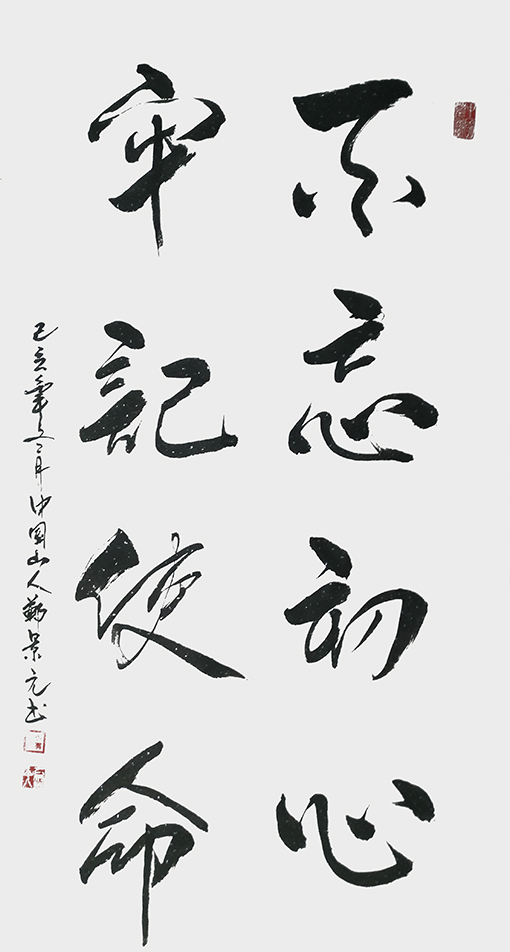 不忘初心
牢記使命
己亥年冬月中国山人蘇景元书